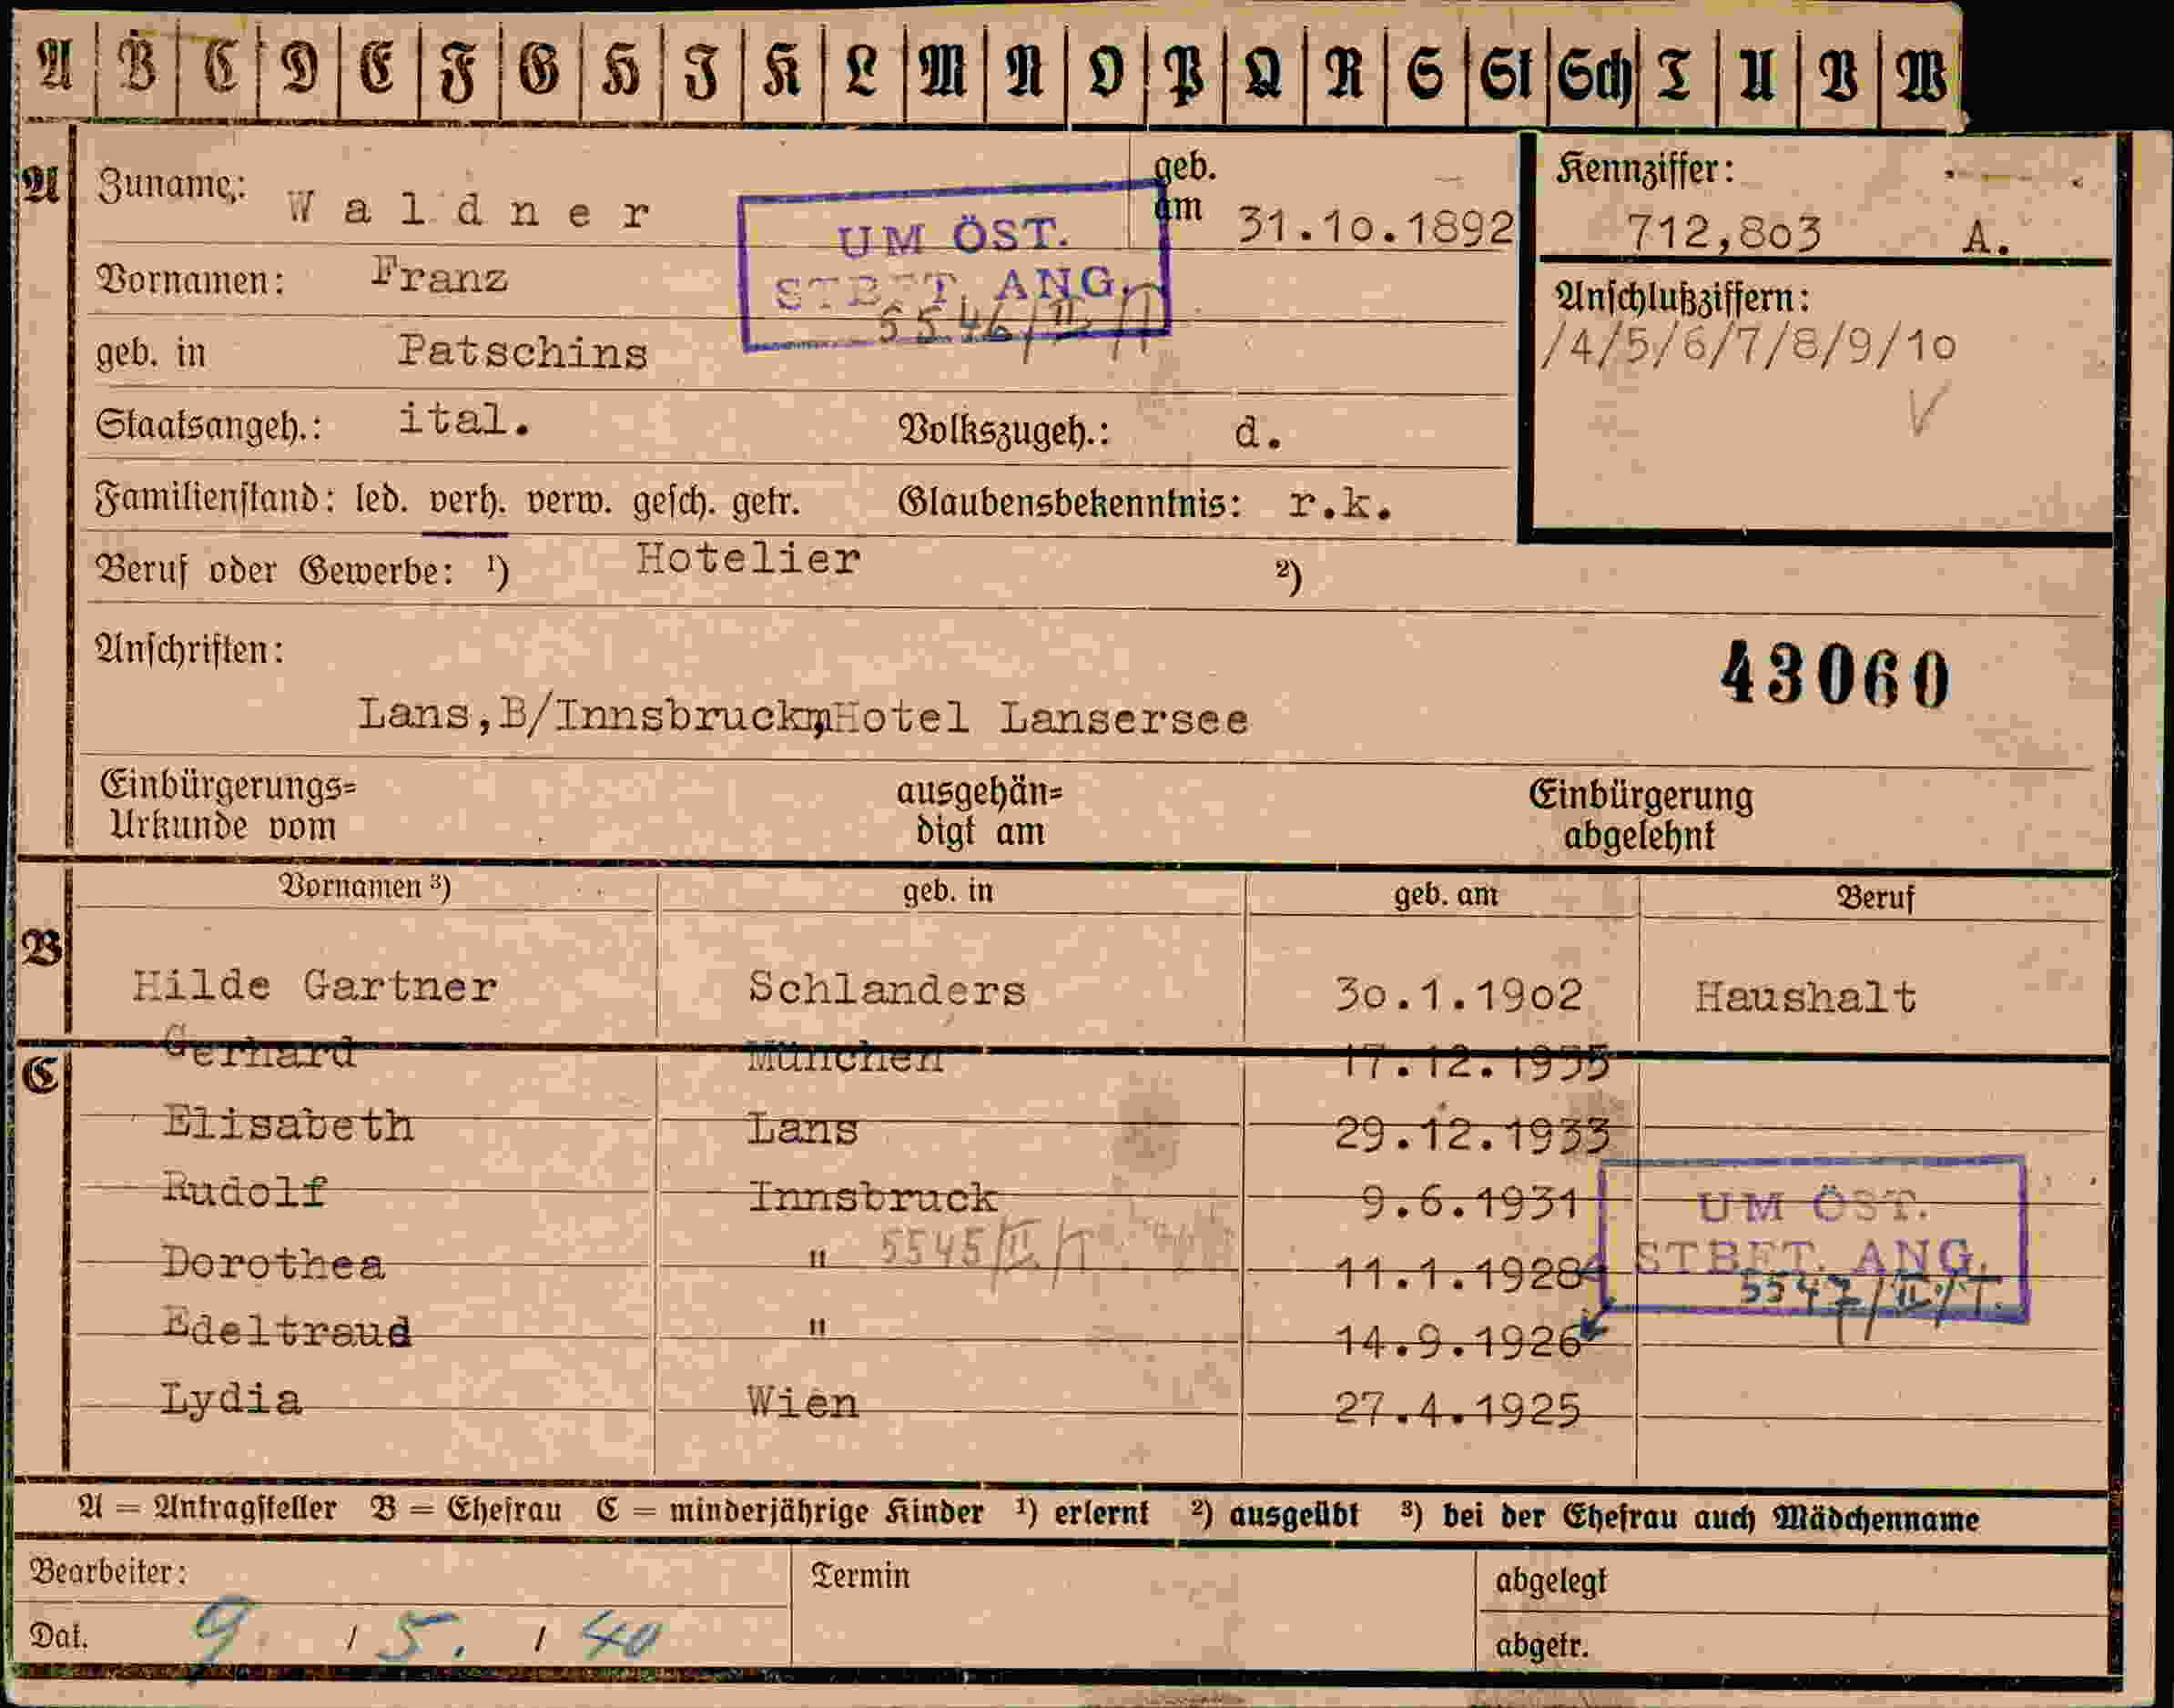 A B C D E F G H I K L M N O P Q R S St Sch T U V W
A Zuname: Waldner geb. am 31.10.1892
UM ÖST.
STBFT. ANG.
5546/II/T
Kennziffer:
712,803 A.
Vornamen: Franz
Anschlußziffern:
/4/5/6/7/8/9/10
geb. in Patschins
Staatsangeh.: ital. Volkszugeh.: d.
Familienstand: led. verh. verw. gesch. getr. Glaubensbekenntnis: r.k.
Beruf oder Gewerbe: ¹) Hotelier ²)
Anschriften:
43060
Lans,B/Innsbruck,Hotel Lansersee
Einbürgerungs= ausgehän= Einbürgerung
Urkunde vom digt am abgelehnt
Vornamen ³) geb. in geb. am Beruf
B Hilde Gartner Schlanders 30.1.1902 Haushalt
C Gerhard München 17.12.1935
Elisabeth Lans 29.12.1933
Rudolf Innsbruck 9.6.1931
UM ÖST.
STBFT. ANG.
5547/II/T.
5545/II/T
Dorothea " 11.1.1928
Edeltraud " 14.9.1926
Lydia Wien 27.4.1925
A = Antragsteller B = Ehefrau C = minderjährige Kinder ¹) erlernt ²) ausgeübt ³) bei der Ehefrau auch Mädchenname
Bearbeiter: Termin abgelegt
Dat. 9. / 5. / 40 abgetr.